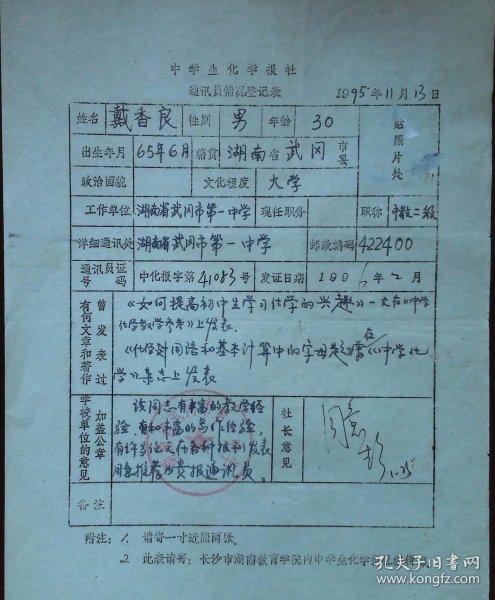 中学生化学报社
通讯员情况登记表 1995年11月13日
姓名 戴香良 性别 男 年龄 30 贴照片处
出生年月 65年6月 籍贯 湖南省武冈市县
政治面貌 文化程度 大学
工作单位 湖南省武冈市第一中学 现任职务 职称 中教二级
详细通讯处 湖南省武冈市第一中学 邮政编码 422400
通讯员证号码 中化报字第41083号 发证日期 1996年2月
曾发表过有何文章和著作
《如何提高初中生学习化学的兴趣》一文在《中学
化学教学参考》上发表.
《化学计用语和基本计算中的字母题》曾在《中学化
学》杂志上发表
学校单位的意见 加盖公章
该同志有丰富的教学经
验,有和丰富的写作经验,
有许多论文在各种报刊发表
同意推荐为贵报通讯员.
社长意见
同意
备注
附注:1. 请寄一寸近照两张.
2. 此表请寄:长沙市湖南教育学院内中学生化学
孔夫子旧书网
www.kongfz.com